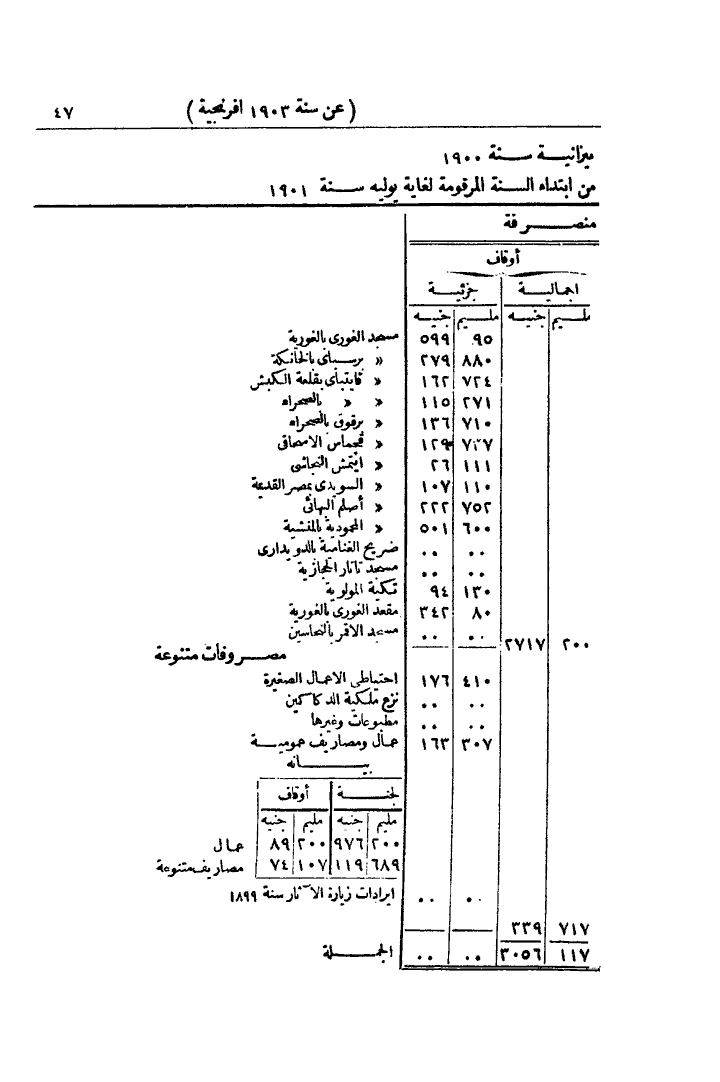 ٤٧ (عن سنة ١٩٠٣ افرنجية)
ميزانية سنة ١٩٠٠
من ابتداء السنة المرقومة لغاية يوليه سنة ١٩٠١
منصرفة
أوقاف
اجمالية جزئية
مليم جنيه مليم جنيه
٩٥ ٥٩٩ مسجد الغورى بالغورية
٨٨٠ ٢٧٩ « برسباى بالخانكة
٧٢٤ ١٦٢ « قايتباى بقلعة الكبش
٢٧١ ١١٥ « « بالصحراء
٧١٠ ١٣٦ « برقوق بالصحراء
٧٢٧ ١٢٩ « قجماس الاسحاقى
١١١ ٢٦ « ايتمش النجاشى
١١٠ ١٠٧ « السويدى بمصر القديمة
٧٥٢ ٢٢٢ « أصلم البهائى
٦٠٠ ٥٠١ « المحمودية بالمنشية
٠٠ ٠٠ ضريح الغنامية بالدويدارى
٠٠ ٠٠ مسجد تاتار الحجازية
١٣٠ ٩٤ تكية المولوية
٨٠ ٣٤٢ مقعد الغورى بالغورية
٠٠ ٠٠ مسجد الاقمر بالنحاسين
٢٠٠ ٢٧١٧
مصروفات متنوعة
٤١٠ ١٧٦ احتياطى الاعمال الصغيرة
٠٠ ٠٠ نزع ملكية الدكاكين
٠٠ ٠٠ مطبوعات وغيرها
٣٠٧ ١٦٣ عمال ومصاريف عمومية
بيانه
لجنة أوقاف
مليم جنيه مليم جنيه
٢٠٠ ٩٧٦ ٢٠٠ ٨٩ عمال
٦٨٩ ١١٩ ١٠٧ ٧٤ مصاريف متنوعة
٠٠ ٠٠ ايرادات زيارة الآثار سنة ١٨٩٩
٧١٧ ٣٣٩
١١٧ ٣٠٥٦ ٠٠ ٠٠ الجملة